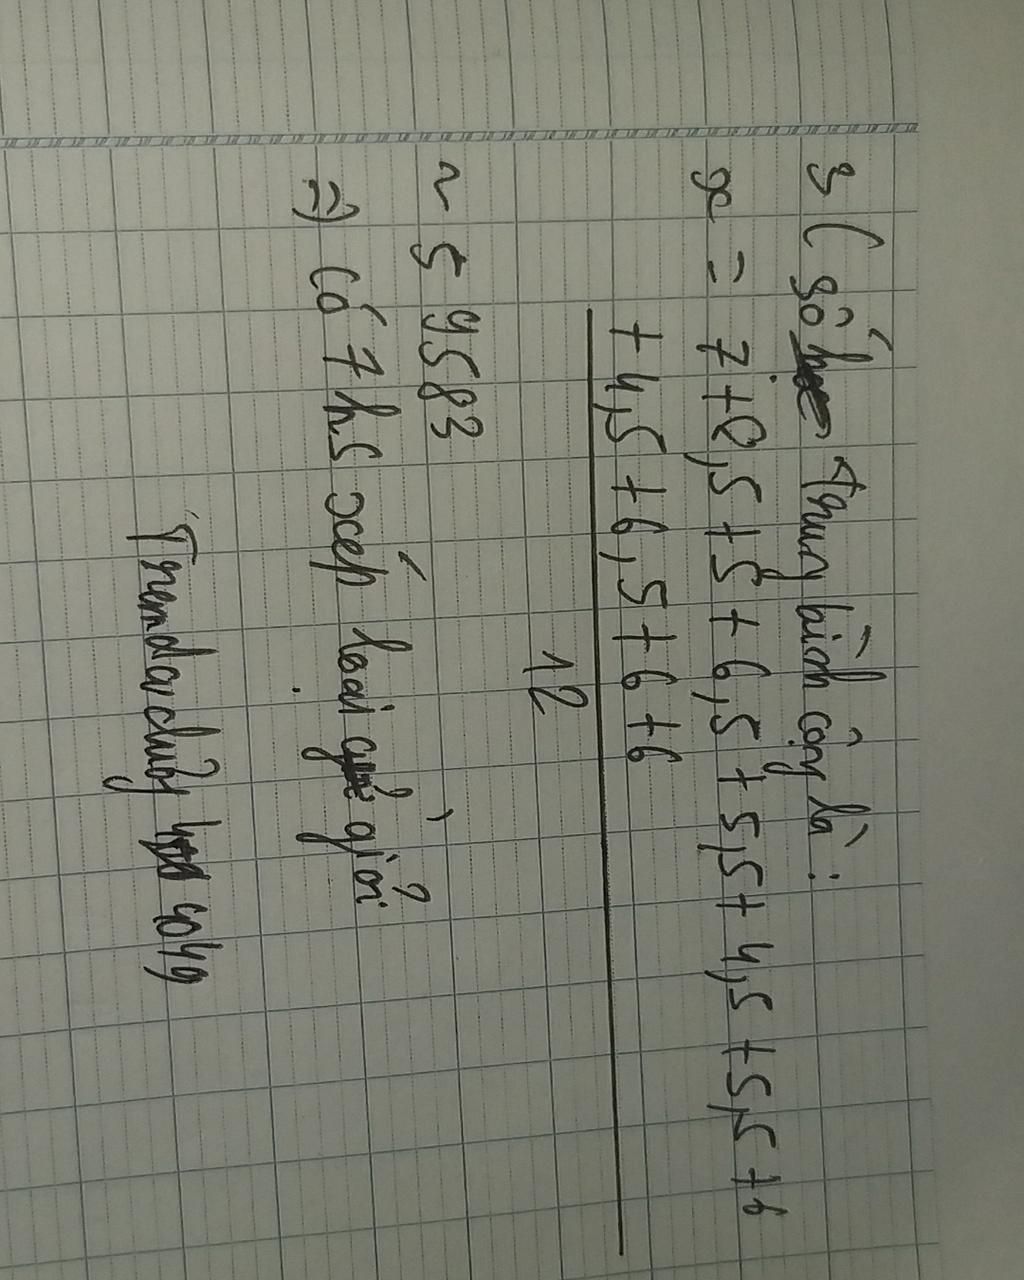 3 ( số trung bình cộng là :
x = 7 + 8,5 + 5 + 6,5 + 5,5 + 4,5 + 5,5 + 6
+ 4,5 + 6,5 + 6 + 6
12
~ 5 9583
=) Có 7 hs xếp loại giỏi